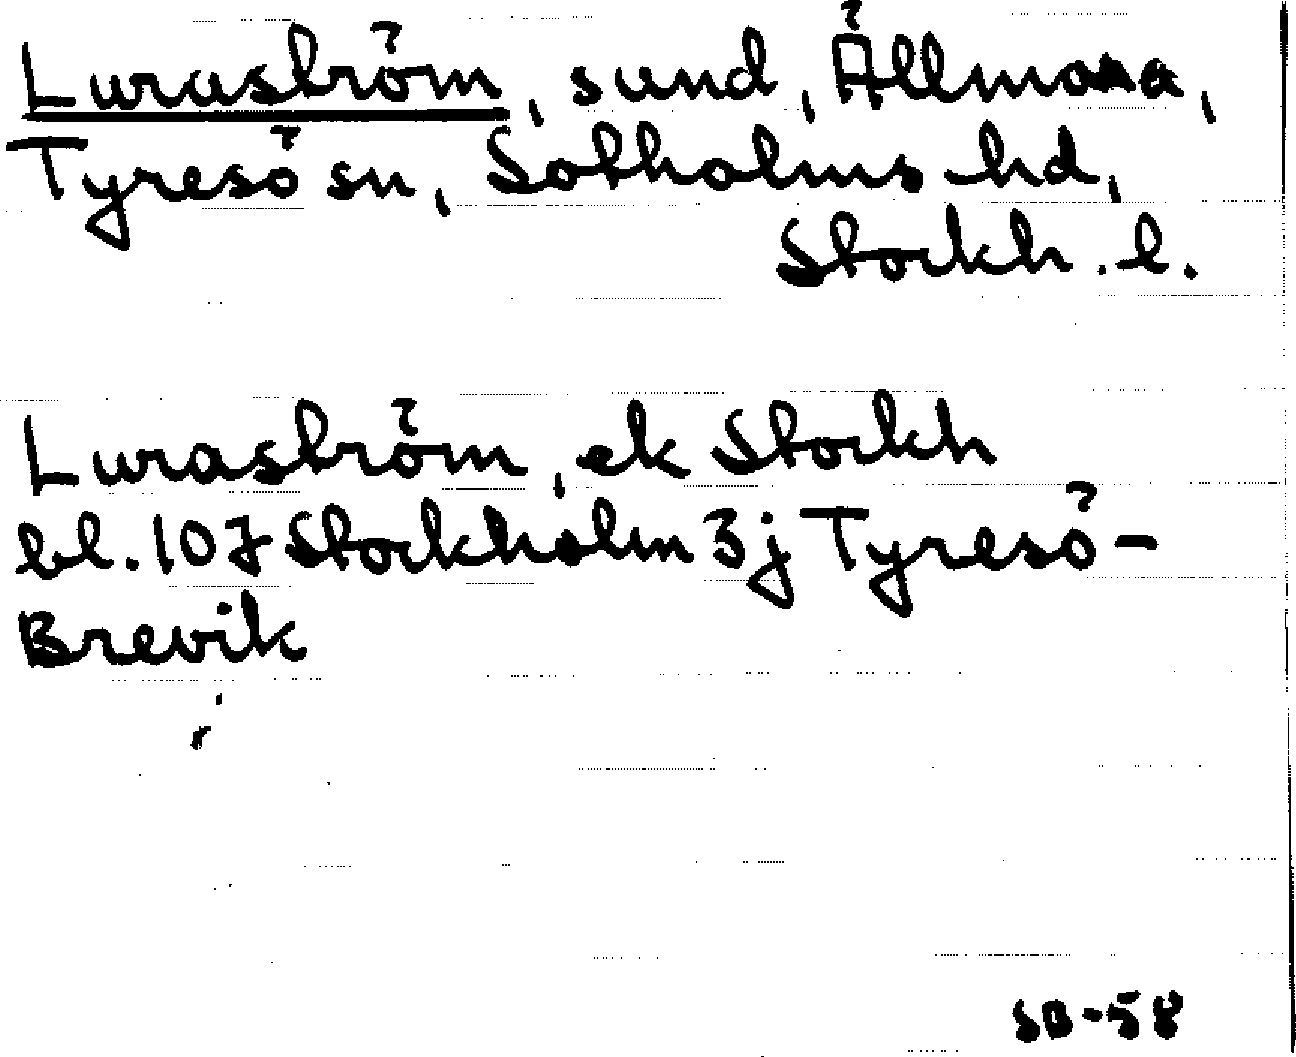 Luraström, sund, Ällmora,
Tyresö sn, Sotholms hd,
Stockh. l.
Luraström, ek Stockh
bl. 107 Stockholm 3j Tyresö-
Brevik
SB-58